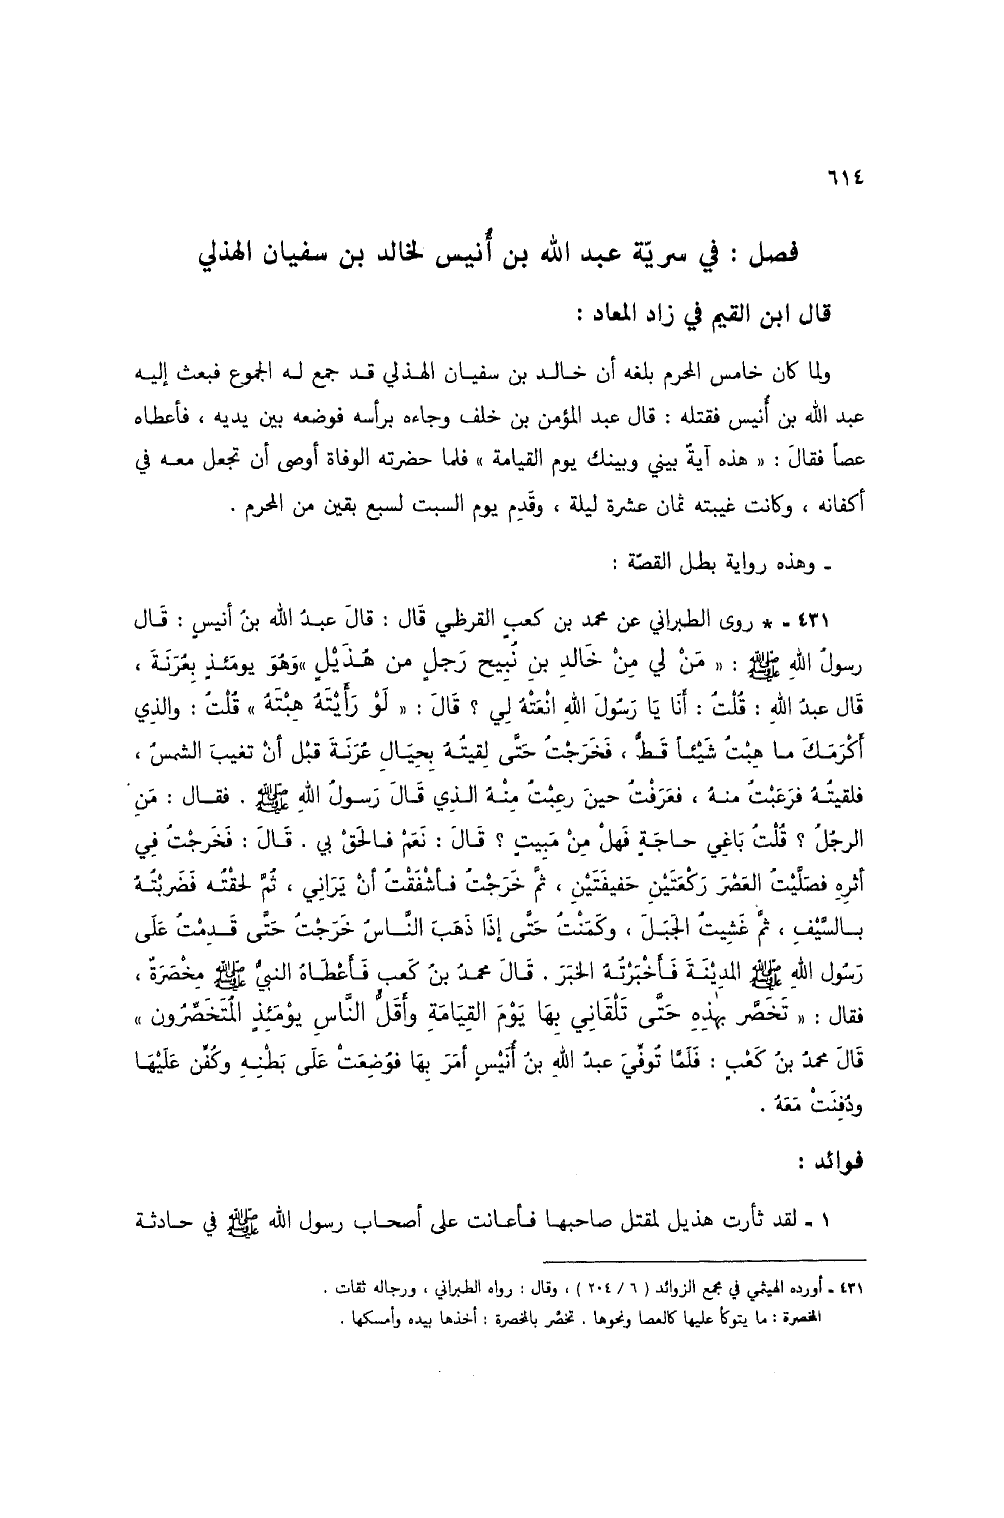 ٦١٤
فصل : في سريّة عبد الله بن أُنيس لخالد بن سفيان الهذلي
قال ابن القيم في زاد المعاد :
ولما كان خامس المحرم بلغه أن خالد بن سفيان الهذلي قد جمع له الجموع فبعث إليه
عبد الله بن أُنيس فقتله : قال عبد المؤمن بن خلف وجاءه برأسه فوضعه بين يديه ، فأعطاه
عصاً فقالَ : « هذه آيةٌ بيني وبينك يوم القيامة » فلما حضرته الوفاة أوصى أن تجعل معه في
أكفانه ، وكانت غيبته ثمان عشرة ليلة ، وقَدِم يوم السبت لسبع بقين من المحرم .
ـ وهذه رواية بطل القصّة :
٤٣١ ـ * روى الطبراني عن محمد بن كعبٍ القرظي قَال : قالَ عبدُ الله بنُ أنيسٍ : قَال
رسولُ اللهِ ﷺ : « مَنْ لي مِنْ خَالدِ بنِ نُبيح رَجلٍ من هُذَيْلٍ »وَهُوَ يومَئذٍ بِعُرَنَةَ ،
قَال عبدُ الله : قُلْتُ : أَنَا يَا رَسُولَ اللهِ انْعَتْهُ لِي ؟ قَالَ : « لَوْ رَأَيْتَهُ هِبْتَهُ » قُلْتُ : والذي
أكْرَمَكَ ما هِبْتُ شَيْئاً قَطُّ ، فَخَرَجْتُ حَتَّى لقيتُهُ بِحِيَالِ عُرَنَةَ قبْل أنْ تغيبَ الشمسُ ،
فلقيتُهُ فرَعَبْتُ منهُ ، فعَرَفْتُ حينَ رعِبْتُ مِنْهُ الذي قَالَ رَسولُ اللهِ ﷺ . فقال : مَنِ
الرجلُ ؟ قُلْتُ بَاغِي حاجَةٍ فَهلْ مِنْ مَبِيتٍ ؟ قَالَ : نَعَمْ فالحَقْ بي . قَالَ : فَخَرجْتُ فِي
أثرِهِ فصَلَّيْتُ العَصْرَ رَكْعَتَيْنِ خفيفَتَيْنِ ، ثمَّ خَرَجْتُ فأشْفَقْتُ أنْ يَرَانِي ، ثُمَّ لحقْتُه فَضَربْتُهُ
بالسَّيْفِ ، ثمَّ غَشِيتُ الجَبَلَ ، وكَمَنْتُ حَتَّى إذَا ذَهَبَ النَّاسُ خَرَجْتُ حَتَّى قَدِمْتُ عَلَى
رَسُول اللهِ ﷺ المدِيْنَةَ فَأخْبَرْتُهُ الخبَرَ . قَالَ محمدُ بنُ كَعبٍ فَأعْطَاهُ النبيُّ ﷺ مِخْصَرَةً ،
فقال : « تَخَصَّر بهٰذِهِ حَتَّى تَلْقَانِي بِهَا يَوْمَ القِيَامَةِ وأَقَلُّ النَّاسِ يوْمَئذٍ المُتَخَصِّرُون »
قَالَ محمدُ بنُ كَعْبٍ : فَلَمَّا تُوفِّيَ عبدُ اللهِ بنُ أُنَيْسٍ أمَرَ بِهَا فوُضِعَتْ عَلَى بَطْنِهِ وكُفِّن عَلَيْهَا
ودُفِنَتْ مَعَهُ .
فوائد :
١ ـ لقد ثأرت هذيل لمقتل صاحبها فأعانت على أصحاب رسول الله ﷺ في حادثة
٤٣١ ـ أورده الهيثمي في مجمع الزوائد ( ٦ / ٢٠٤ ) ، وقال : رواه الطبراني ، ورجاله ثقات .
المخصرة : ما يتوكأ عليها كالعصا ونحوها . تخصَّر بالمخصرة : أخذها بيده وأمسكها .